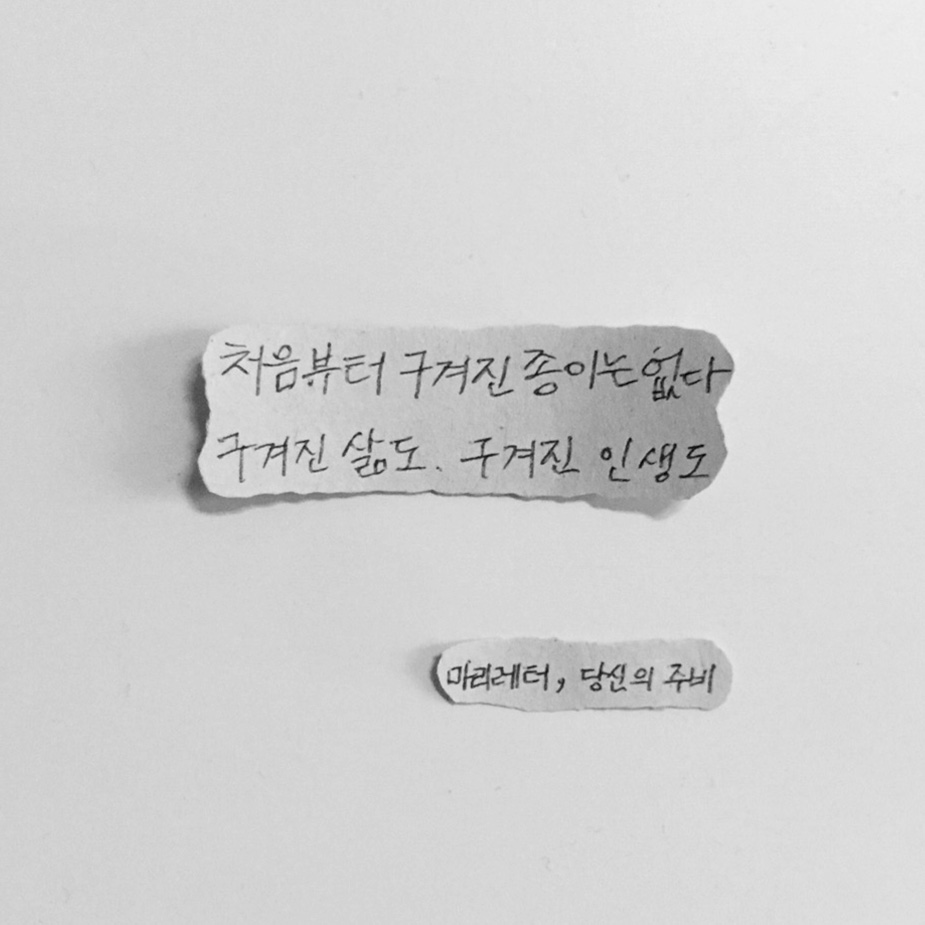 처음부터 구겨진 종이는 없다
구겨진 삶도. 구겨진 인생도
마리레터, 당신의 주비